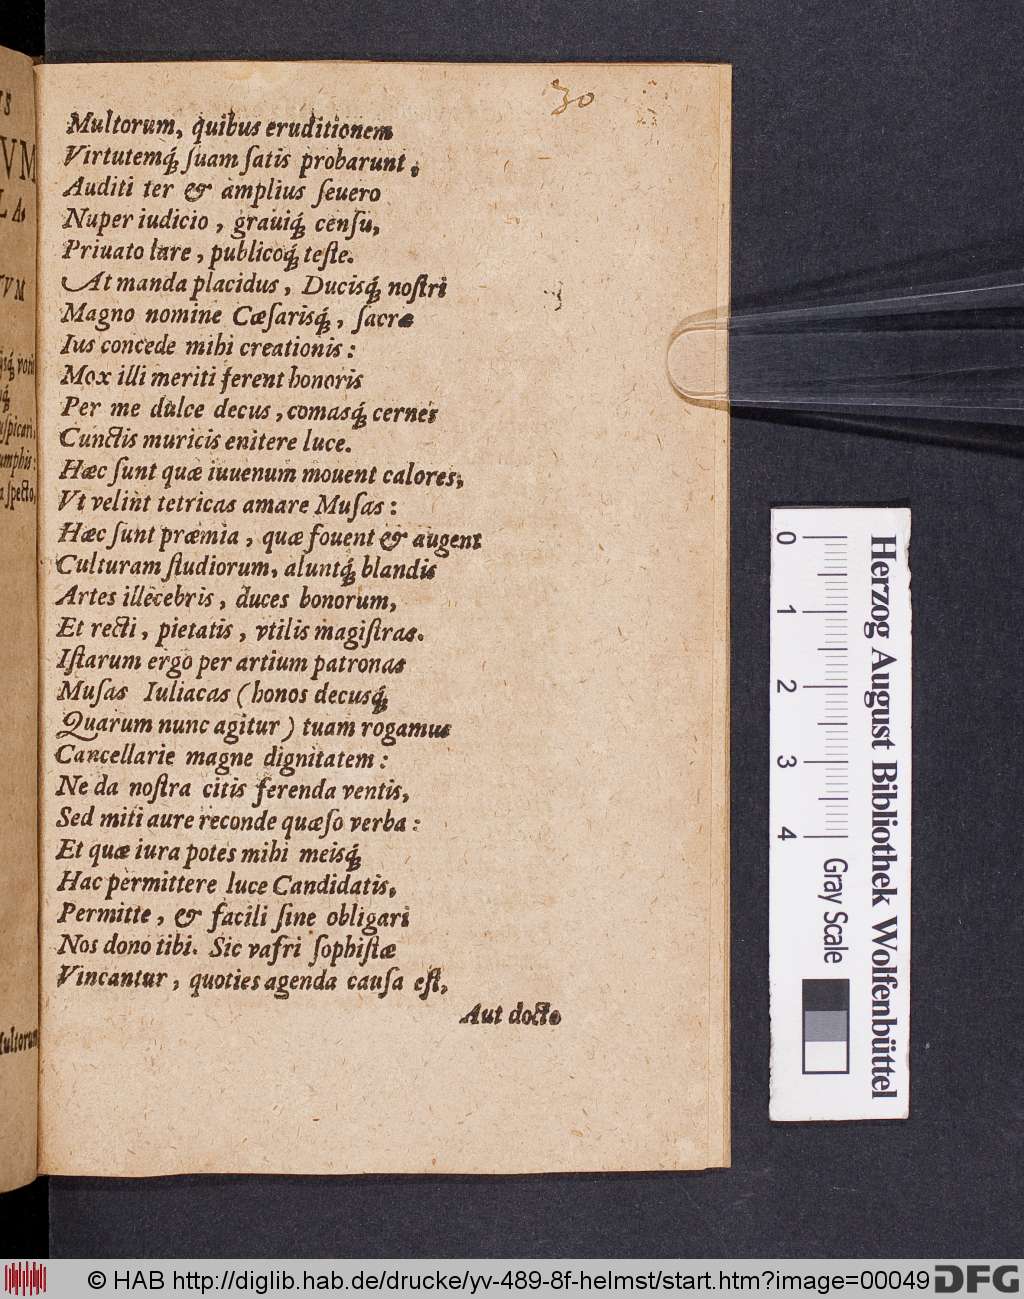 30
Multorum, quibus eruditionem
Virtutemq́; ſuam ſatis probarunt,
Auditi ter & amplius ſeuero
Nuper iudicio, grauiq́; cenſu,
Priuato lare, publicoq́; teſte.
At manda placidus, Ducisq́; noſtri
Magno nomine Cæſarisq́;, ſacræ
Ius concede mihi creationis:
Mox illi meriti ferent honoris
Per me dulce decus, comasq́; cernes
Cunctis muricis enitere luce.
Hæc ſunt quæ iuuenum mouent calores,
Vt velint tetricas amare Muſas:
Hæc ſunt præmia, quæ fouent & augent
Culturam ſtudiorum, aluntq́; blandis
Artes illecebris, duces bonorum,
Et recti, pietatis, vtilis magiſtras.
Iſtarum ergo per artium patronas
Muſas Iuliacas (honos decusq́;
Quarum nunc agitur) tuam rogamus
Cancellarie magne dignitatem:
Ne da noſtra citis ferenda ventis,
Sed miti aure reconde quæſo verba:
Et quæ iura potes mihi meisq́;
Hac permittere luce Candidatis,
Permitte, & facili ſine obligari
Nos dono tibi. Sic vafri ſophiſtæ
Vincantur, quoties agenda cauſa eſt,
Aut docto
VM
Herzog August Bibliothek Wolfenbüttel
0 1 2 3 4
Gray Scale
© HAB http://diglib.hab.de/drucke/yv-489-8f-helmst/start.htm?image=00049
DFG